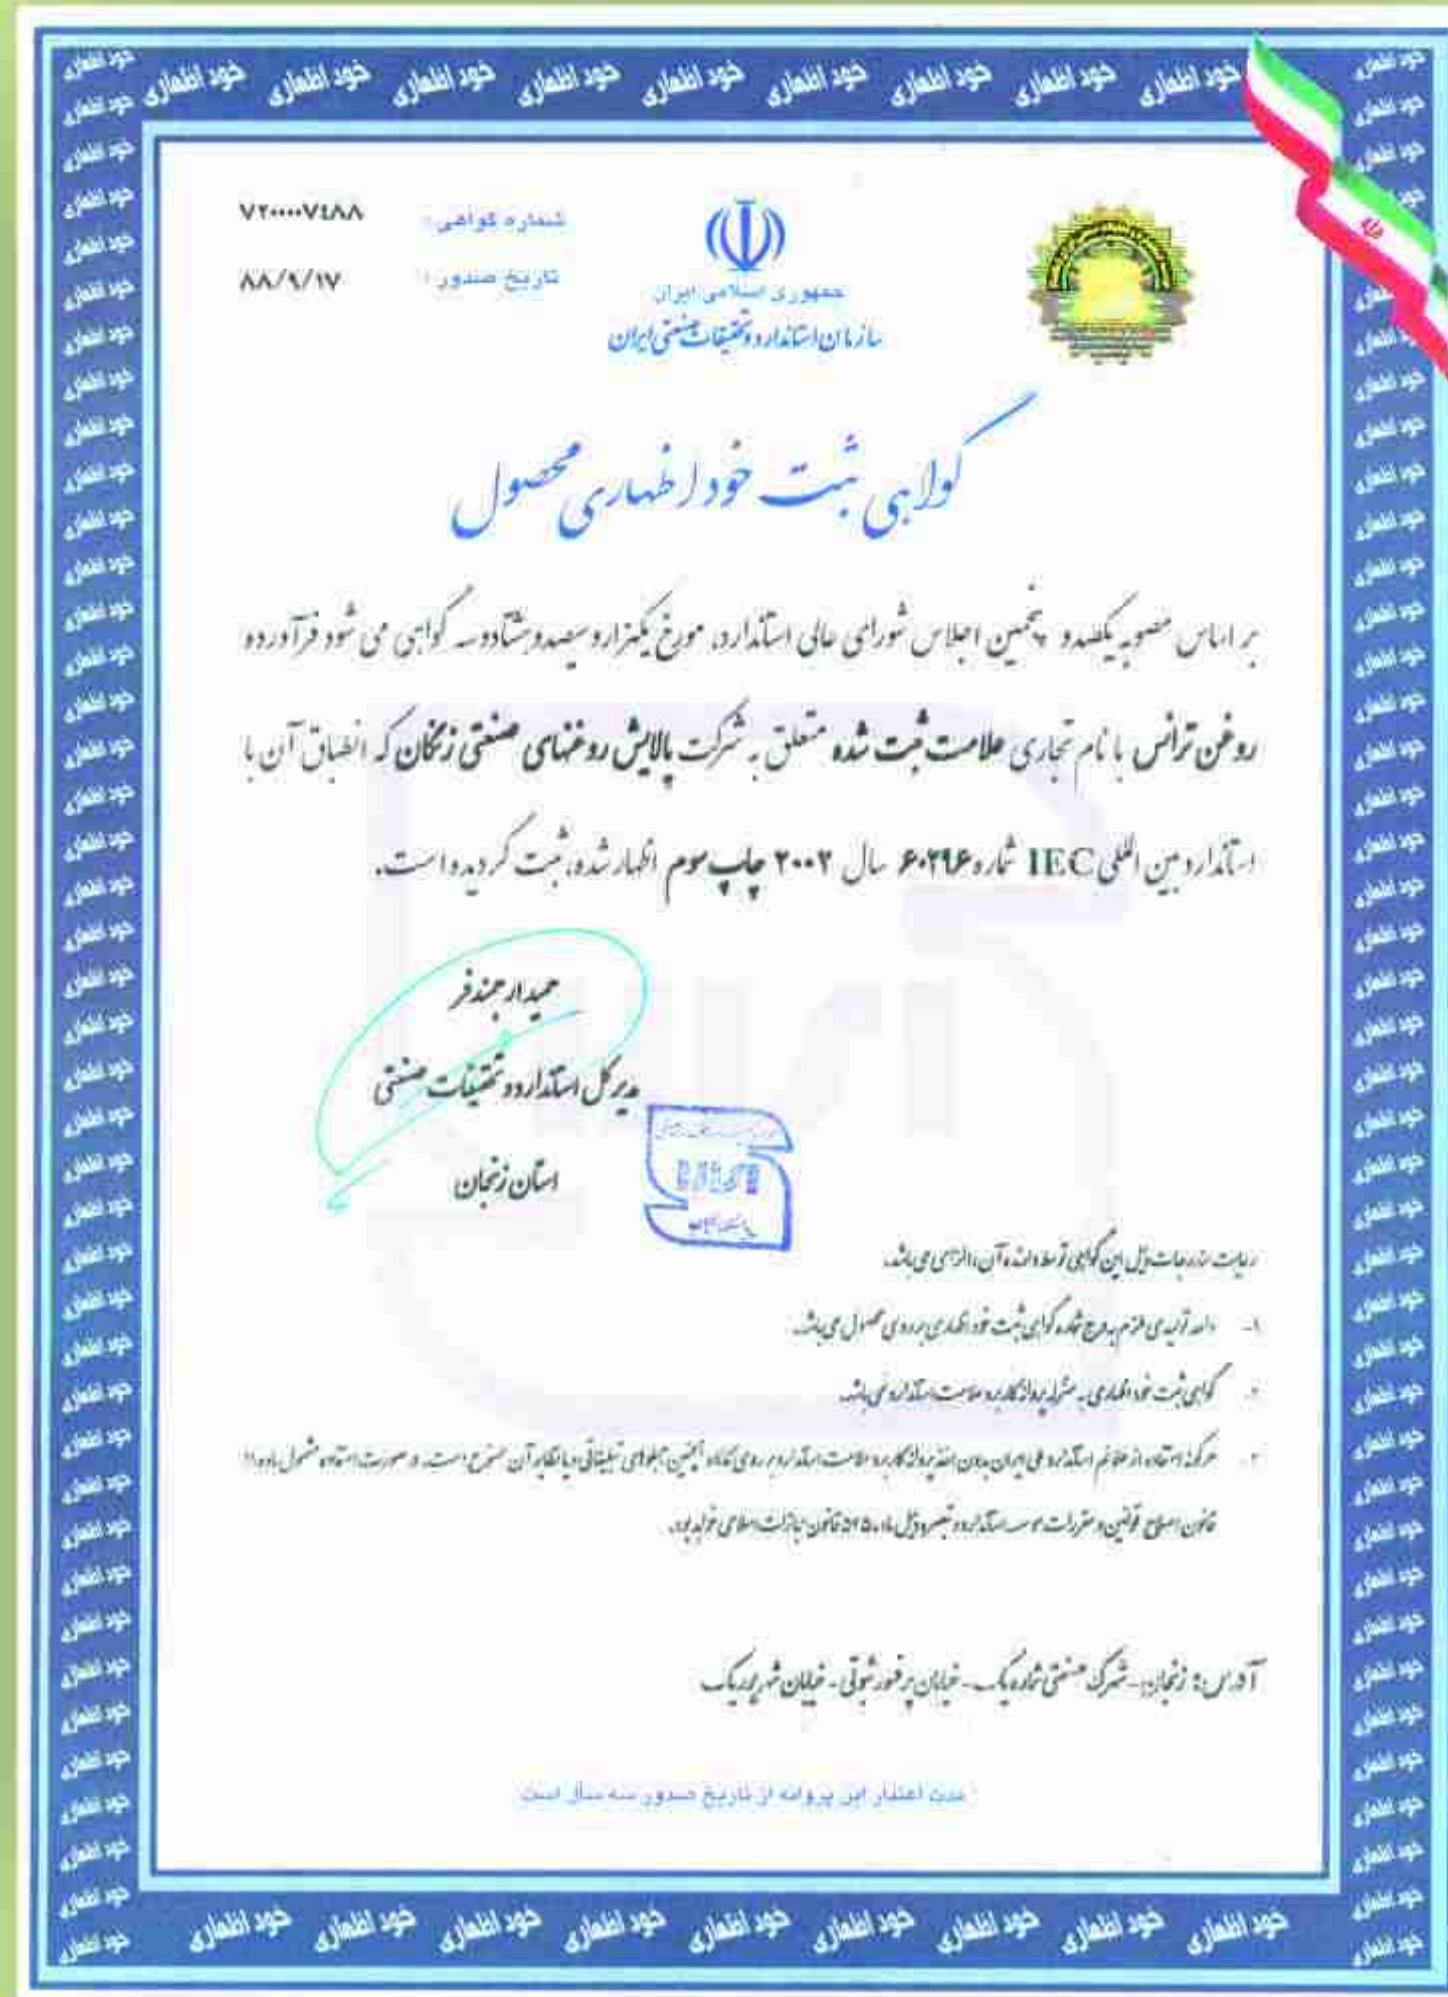 خود اظهاری خود اظهاری خود اظهاری خود اظهاری خود اظهاری خود اظهاری خود اظهاری خود اظهاری خود اظهاری
شماره گواهی: ۷۲۰۰۰۰۷٤۸۸
تاریخ صدور: ۸۸/۹/۱۷
جمهوری اسلامی ایران
سازمان استاندارد و تحقیقات صنعتی ایران
گواهی ثبت خود اظهاری محصول
بر اساس مصوبه یکصد و پنجمین اجلاس شورای عالی استاندارد، مورخ یکهزار و سیصد و هشتاد و سه گواهی می شود فرآورده
روغن ترانس با نام تجاری علامت ثبت شده متعلق به شرکت پالایش روغنهای صنعتی زنگان که انطباق آن با
استاندارد بین المللی IEC شماره ۶۰۲۹۶ سال ۲۰۰۲ چاپ سوم اظهار شده، ثبت گردیده است.
حمید ارجمندفر
مدیر کل استاندارد و تحقیقات صنعتی
استان زنجان
ISIRI
رعایت مندرجات ذیل این گواهی توسط دارنده آن، الزامی می باشد.
۱- واحد تولیدی ملزم به درج شماره گواهی ثبت خود اظهاری بر روی محصول می باشد.
۲- گواهی ثبت خود اظهاری به منزله پروانه کاربرد علامت استاندارد نمی باشد.
۳- هرگونه استفاده از علائم استاندارد ملی ایران بدون اخذ پروانه کاربرد علامت استاندارد بر روی کالا و همچنین تبلیغاتی و یا نظایر آن ممنوع است. در صورت استفاده مشمول ماده
قانون اصلاح قوانین و مقررات موسسه استاندارد و تبصره ذیل ماده ۵۲۵ قانون مجازات اسلامی خواهد بود.
آدرس: زنجان - شهرک صنعتی شماره یک - خیابان پرفسور ثبوتی - خیابان شهریور یک
مدت اعتبار این پروانه از تاریخ صدور سه سال است
خود اظهاری خود اظهاری خود اظهاری خود اظهاری خود اظهاری خود اظهاری خود اظهاری خود اظهاری خود اظهاری